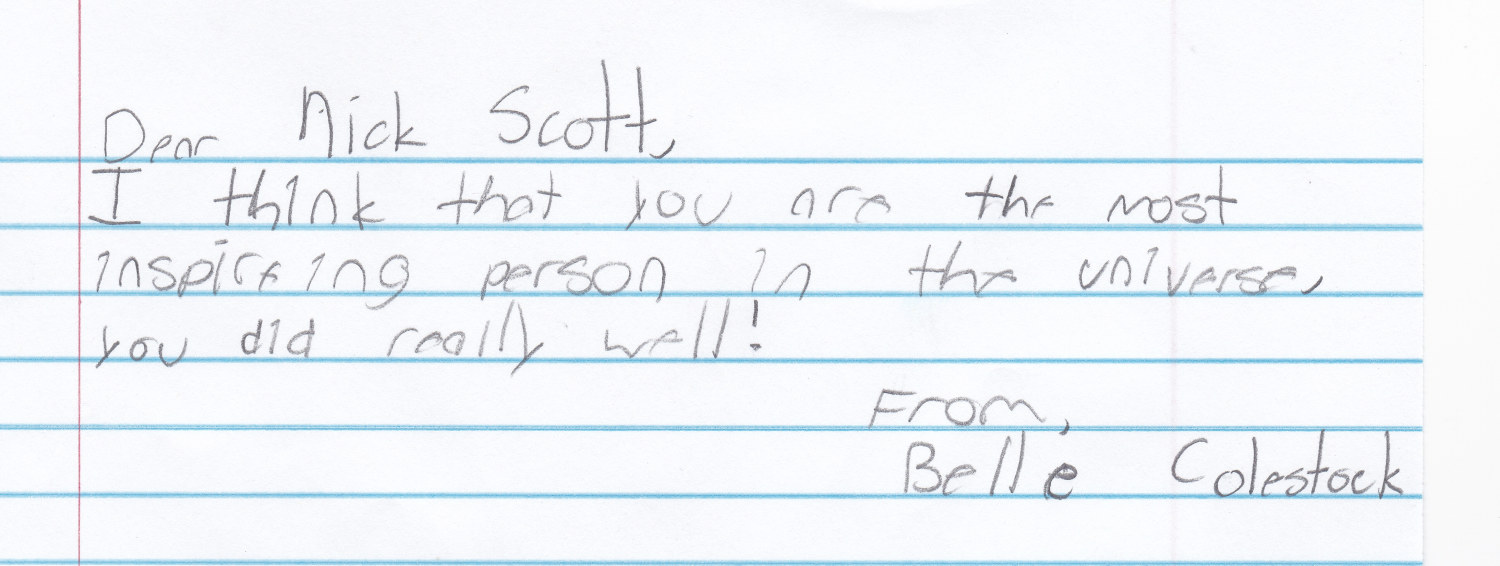 Dear Nick Scott,
I think that you are the most
inspireing person in the universe,
you did really well!
From,
Belle Colestock